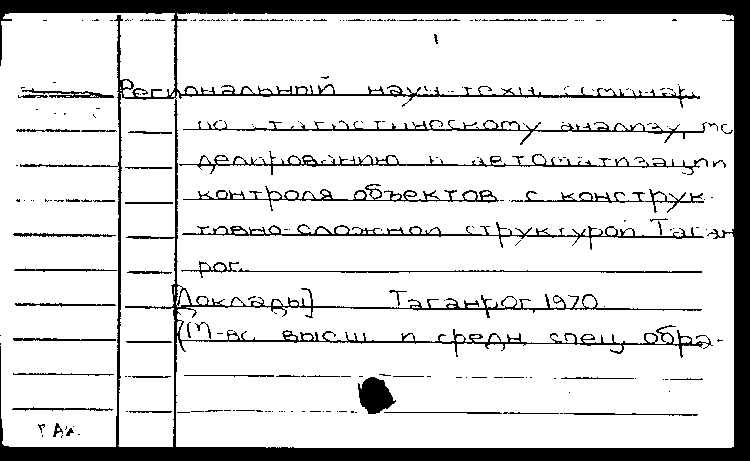 1
Региональный науч.-техн. семинар
по статистическому анализу, мо
делированию и автоматизации
контроля объектов с конструк-
тивно-сложной структурой. Таган
рог.
[Доклады] Таганрог, 1970
(М-во высш. и средн. спец. обра-